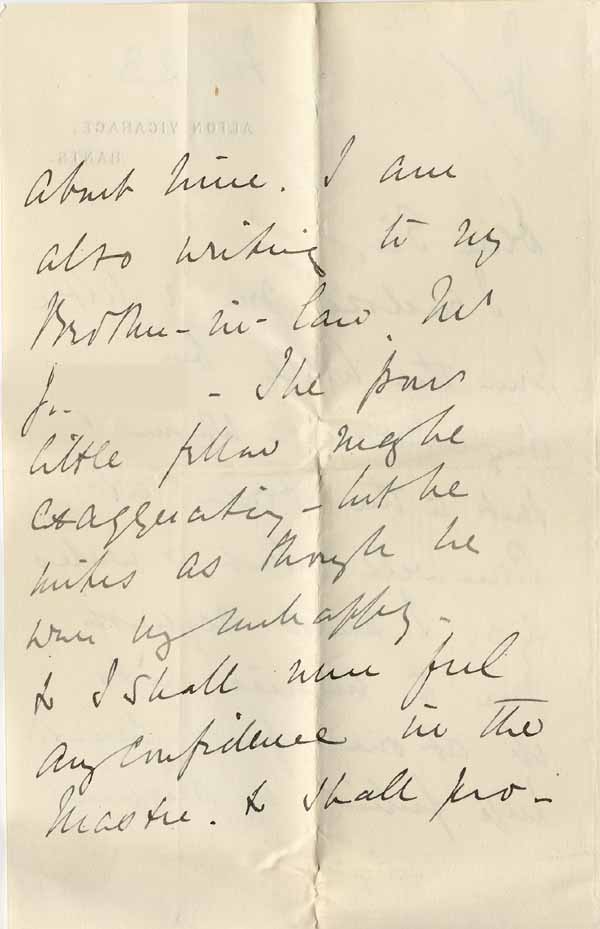 ALTON VICARAGE,
HANTS.
about time. I am
also writing to my
Brother-in-law Mr
J.. - The poor
little fellow may be
exaggerating - but he
writes as though he
were very unhappy -
& I shall never feel
any confidence in the
Master. & shall pro-